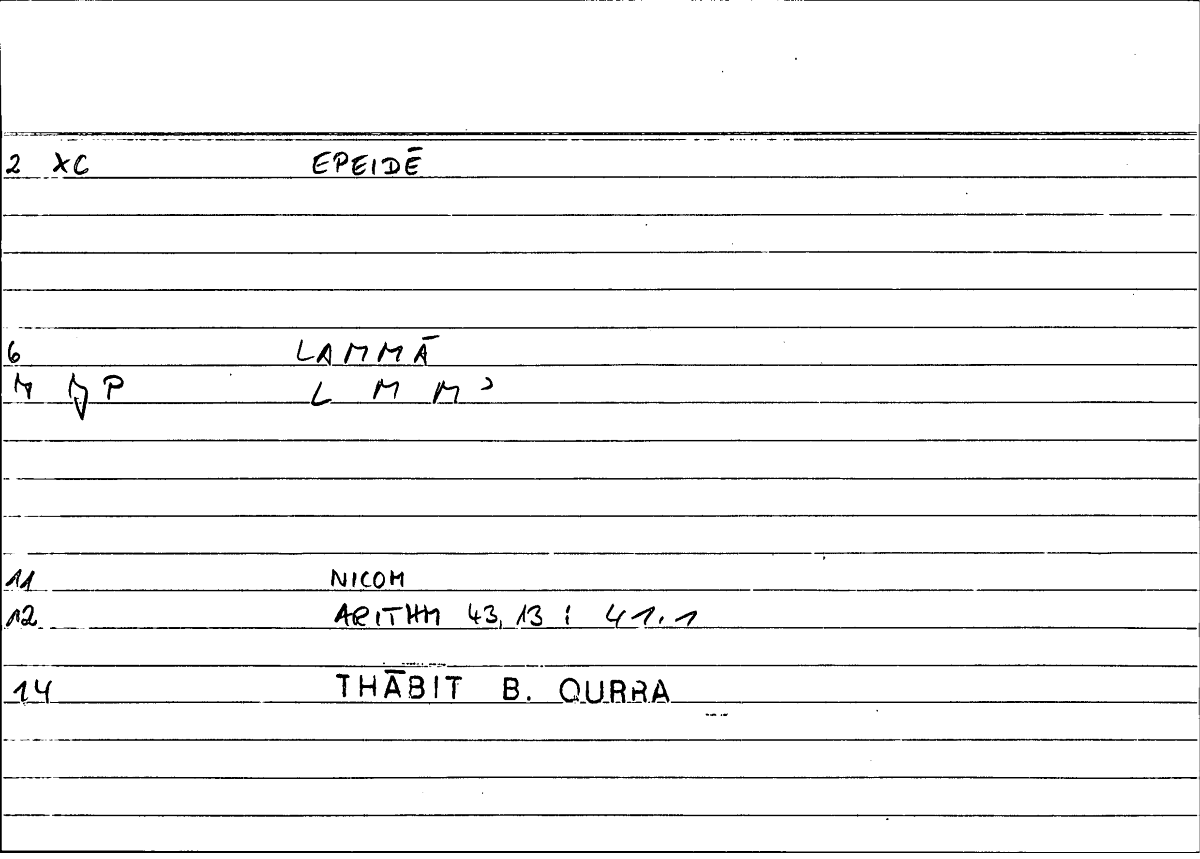 2 XC EPEIDĒ
6 LAMMĀ
P L M M ʾ
11 NICOM
12 ARITHM 43,13 ; 41.1
14 THĀBIT B. QURRA